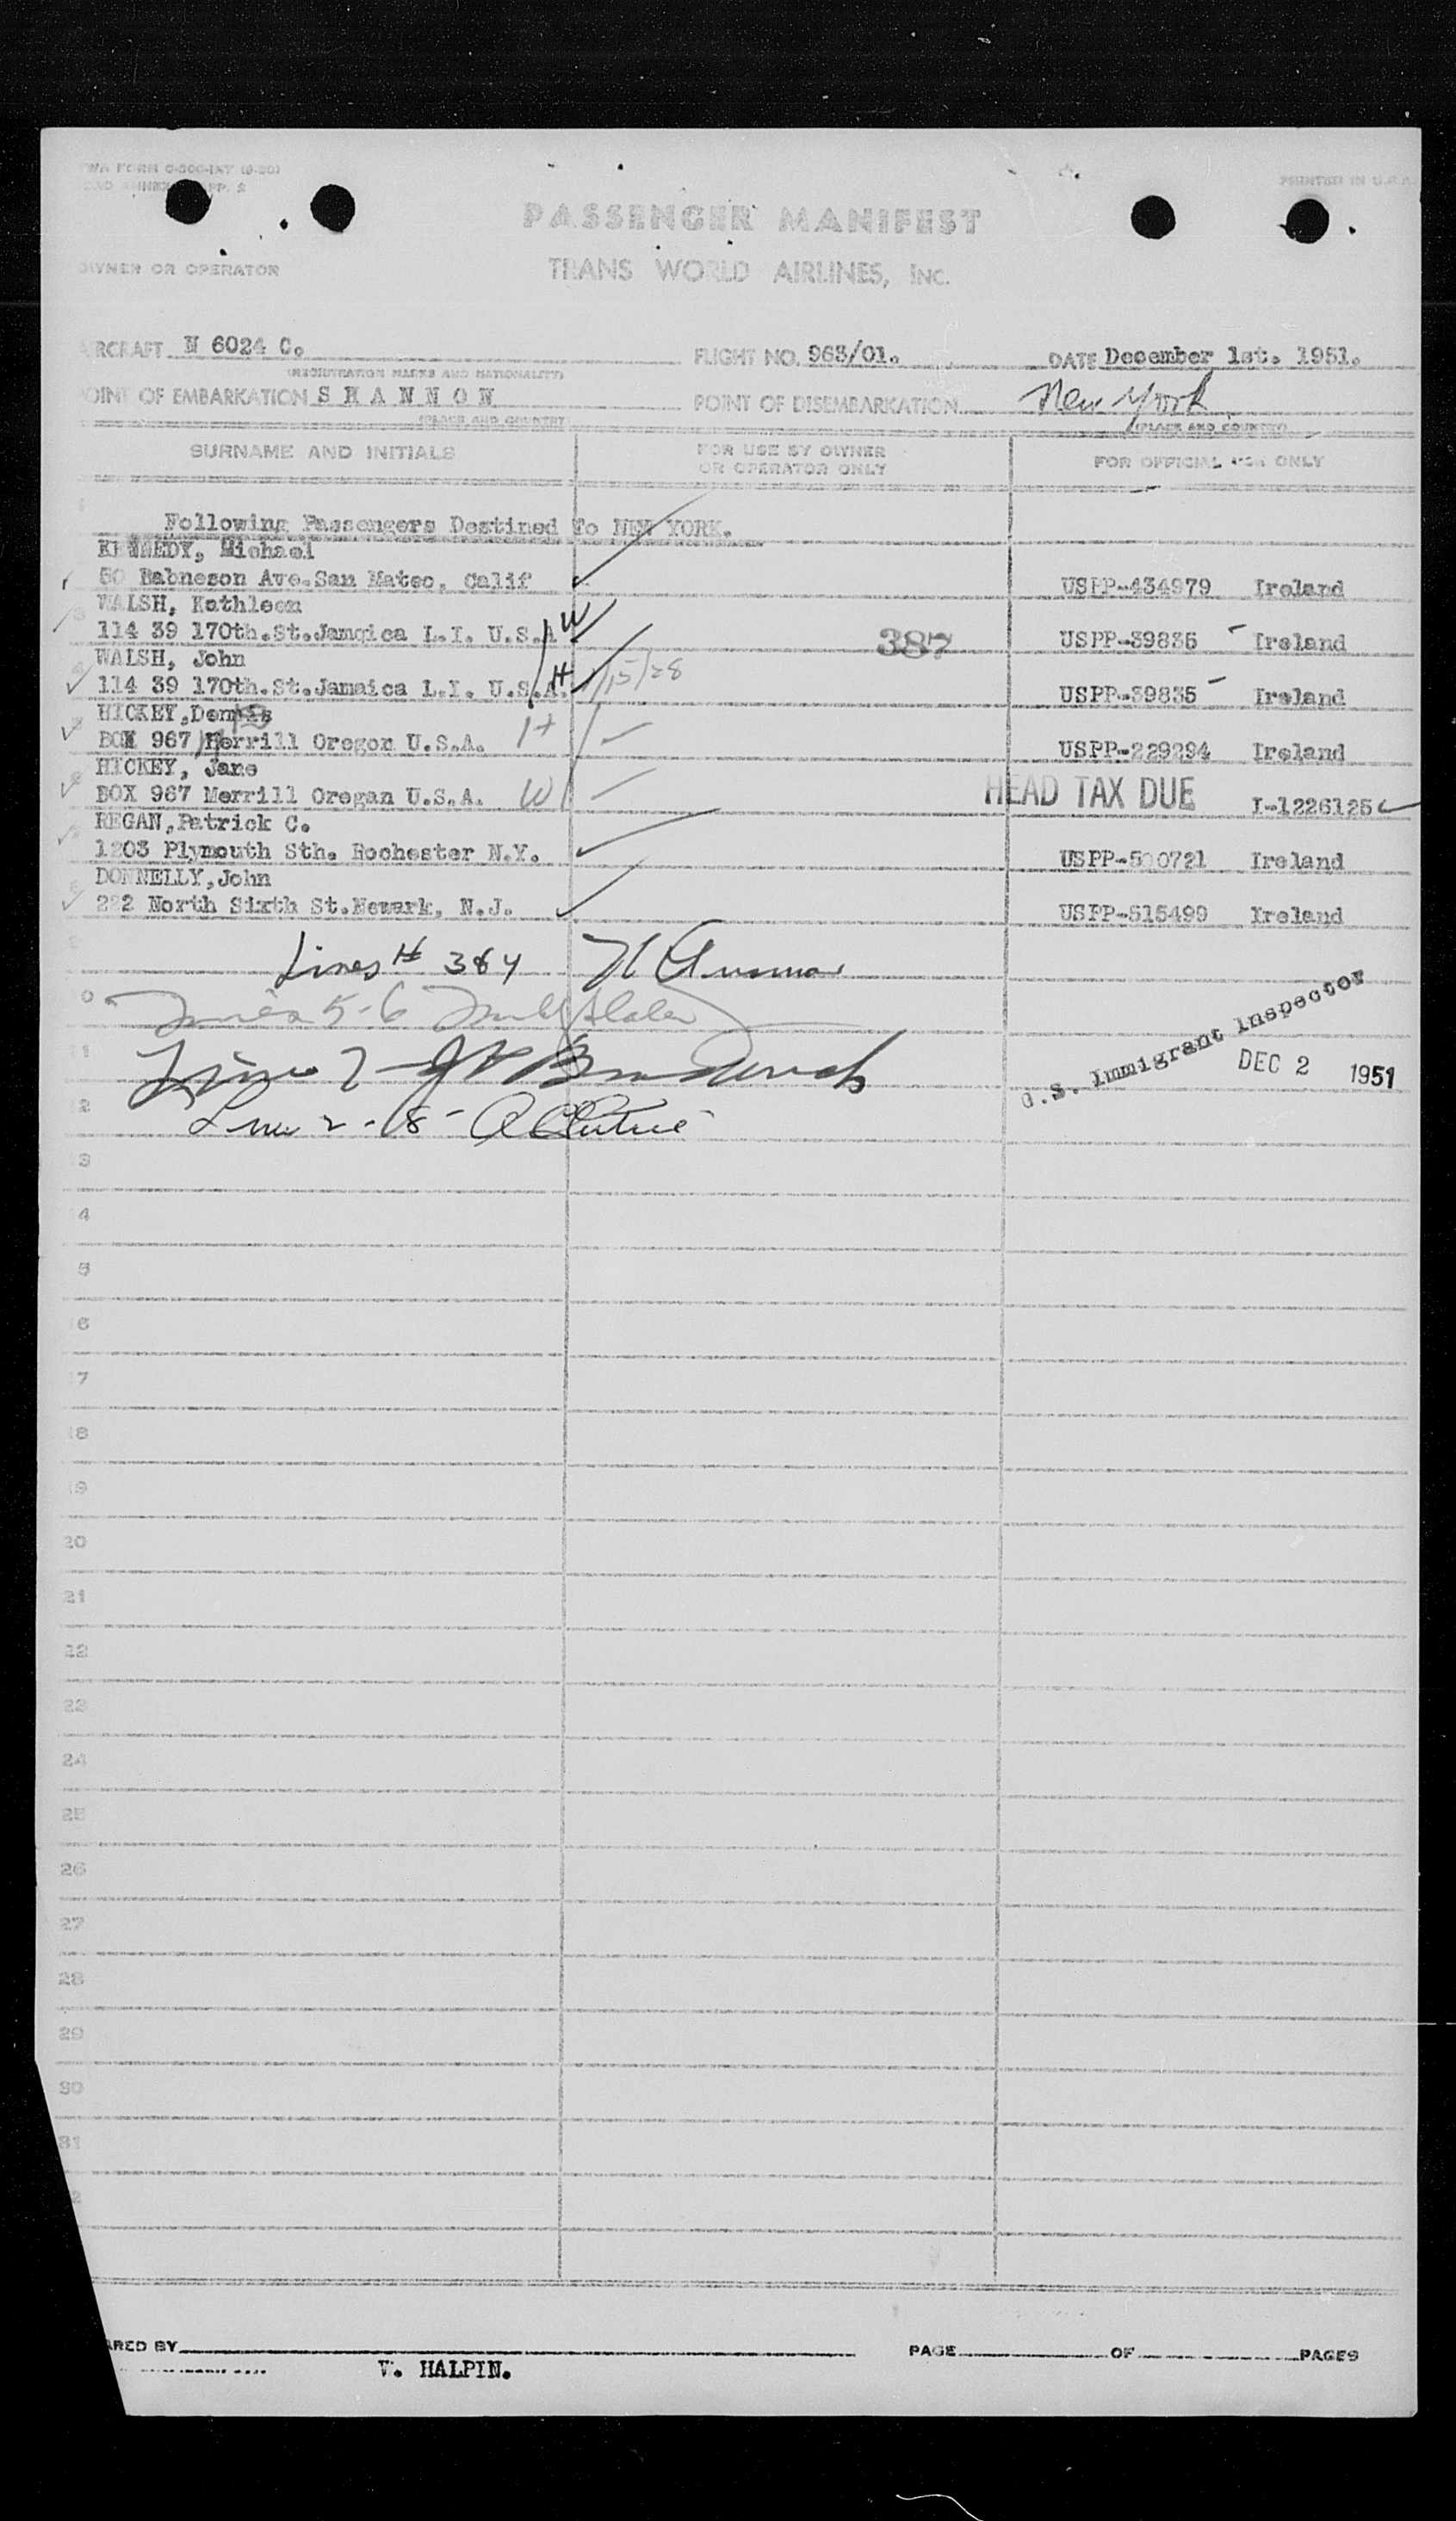 PRINTED IN U.S.A.
PASSENGER MANIFEST
OWNER OR OPERATOR TRANS WORLD AIRLINES, INC.
AIRCRAFT N 6024 C. FLIGHT NO. 963/01. DATE December 1st. 1951.
(REGISTRATION MARKS AND NATIONALITY)
POINT OF EMBARKATION S H A N N O N POINT OF DISEMBARKATION New York
(PLACE AND COUNTRY) (PLACE AND COUNTRY)
SURNAME AND INITIALS FOR USE BY OWNER OR OPERATOR ONLY FOR OFFICIAL USE ONLY
Following Passengers Destined To NEW YORK.
KENNEDY, Michael
50 Ave.San Mateo, Calif USPP-434979 Ireland
WALSH, Kathleen W
114 39 170th.St.Jamqica L.I. U.S.A 387 USPP-39835 Ireland
WALSH, John H
114 39 170th.St.Jamaica L.I. U.S.A. USPP-39835 Ireland
HICKEY,Dennis
BOX 967 Merrill Oregon U.S.A. H USPP-229294 Ireland
HICKEY, Jane HEAD TAX DUE
BOX 967 Merrill Oregan U.S.A. W I-1226125
REGAN,Patrick C.
1203 Plymouth Sth. Rochester N.Y. USPP-500721 Ireland
DONNELLY,John
222 North Sixth St.Newark, N.J. USPP-515499 Ireland
Lines # 384
5-6
U.S. Immigrant Inspector
Line 7 DEC 2 1951
Line 2-8
3
4
5
16
17
18
19
20
21
22
23
24
25
26
27
28
29
30
31
ARED BY PAGE OF PAGES
V. HALPIN.